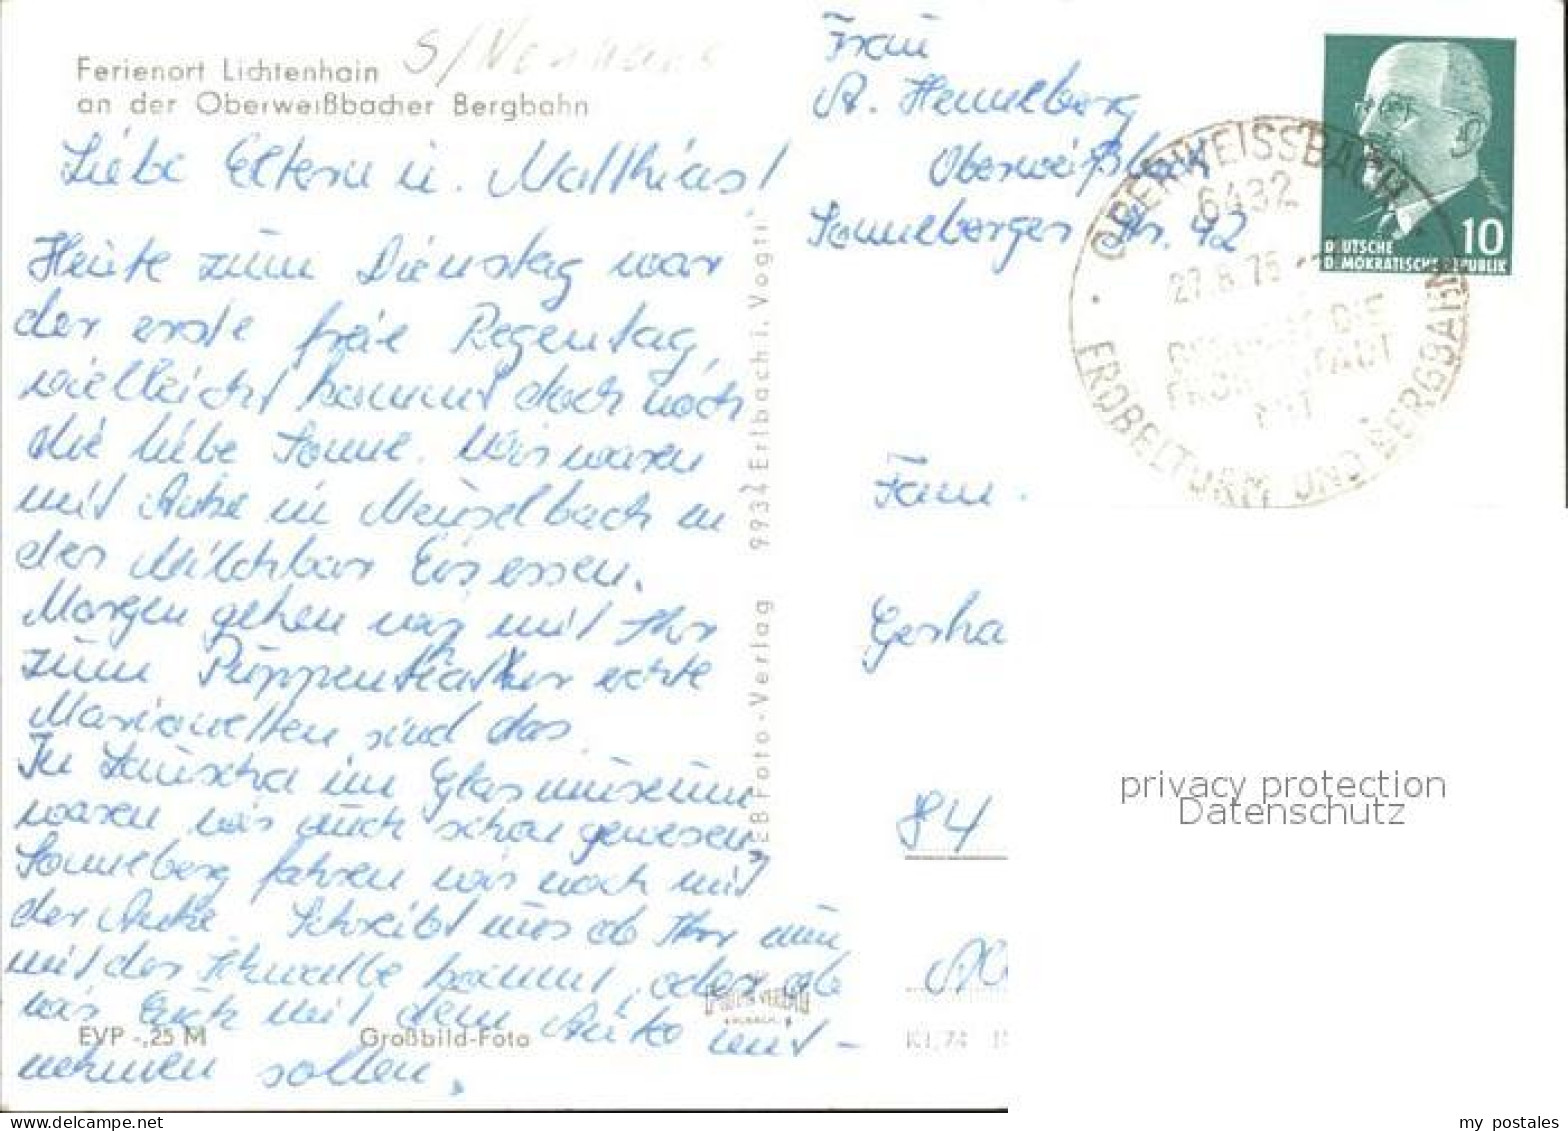 Ferienort Lichtenhain
an der Oberweißbacher Bergbahn
Liebe Eltern u. Matthias!
Heute zum Dienstag war
der erste freie Regentag,
vielleicht kommt doch noch
die liebe Sonne. Wir waren
mit Anke in Meuselbach in
der Milchbar Eis essen.
Morgen gehen wir mit Ihr
zum Puppentheater echte
Marionetten sind das.
In Lauscha im Glasmuseum
waren wir auch schon gewesen,
Sonneberg fahren wir noch mit
der Anke. Schreibt uns ob Ihr nun
mit der Schwalbe kommt, oder ob
wir Euch mit dem Auto mit-
nehmen sollen.
EVP -,25 M
Großbild-Foto
EB Foto-Verlag 9934 Erlbach i. Vogtl.
Frau
A. Henneberg
Oberweißbach
Sonneberger Str. 42
DEUTSCHE
DEMOKRATISCHE REPUBLIK
10
OBERWEISSBACH
6432
27.8.75
FRÖBELTURM UND BERGBAHN
Fam.
Gerha
84
K1/74
privacy protection
Datenschutz
my postales